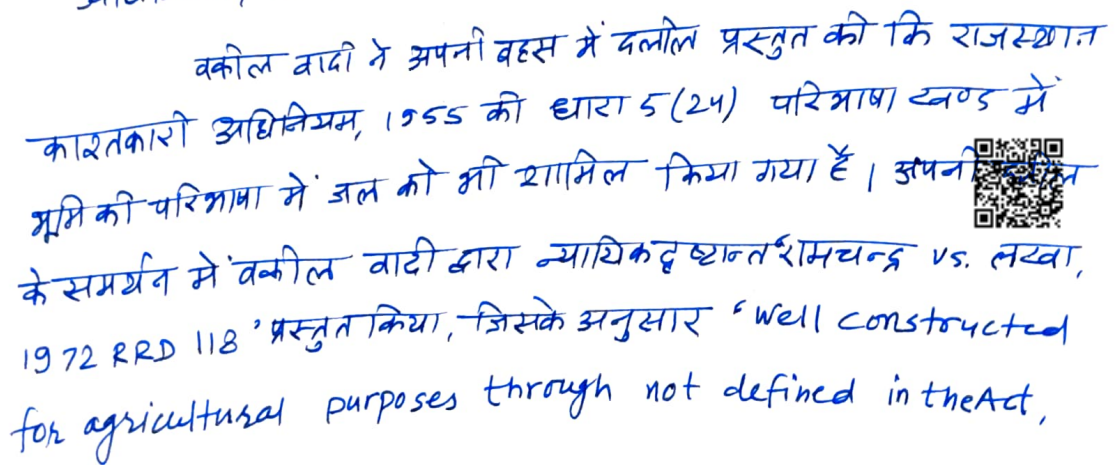 वकील वादी ने अपनी बहस में दलील प्रस्तुत की कि राजस्थान
काश्तकारी अधिनियम, 1955 की धारा 5 (24) परिभाषा खण्ड में
भूमि की परिभाषा में जल को भी शामिल किया गया है । अपनी
के समर्थन में वकील वादी द्वारा न्यायिक दृष्टान्त "रामचन्द्र vs. लखा,
1972 RRD 118 ' प्रस्तुत किया, जिसके अनुसार " Well constructed
for agricultural purposes through not defined in the Act,